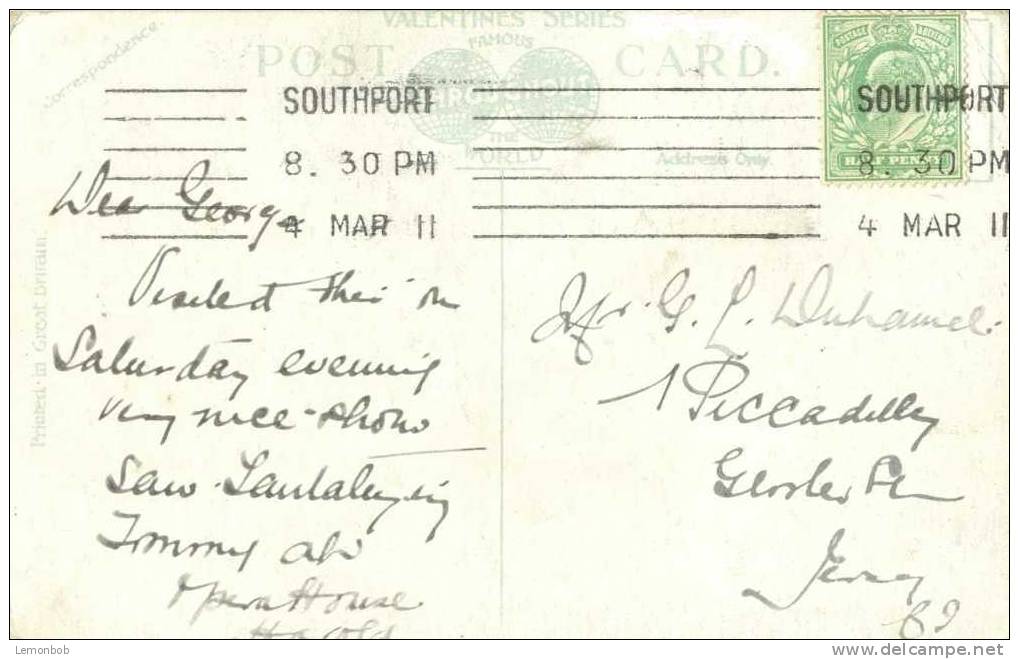 VALENTINES SERIES
POST CARD.
FAMOUS
THE
WORLD
Correspondence.
Address Only.
Printed in Great Britain.
SOUTHPORT
8. 30 PM
4 MAR 11
SOUTHPORT
8. 30 PM
4 MAR 11
POSTAGE & REVENUE
HALF PENNY
Dear George
Visited this on
Saturday evening
very nice show
Saw
Tommy
Opera House
Harold
Mr. G. L. Duhamel.
1 Piccadilly
Jersey
Lemonbob
delcampe.net